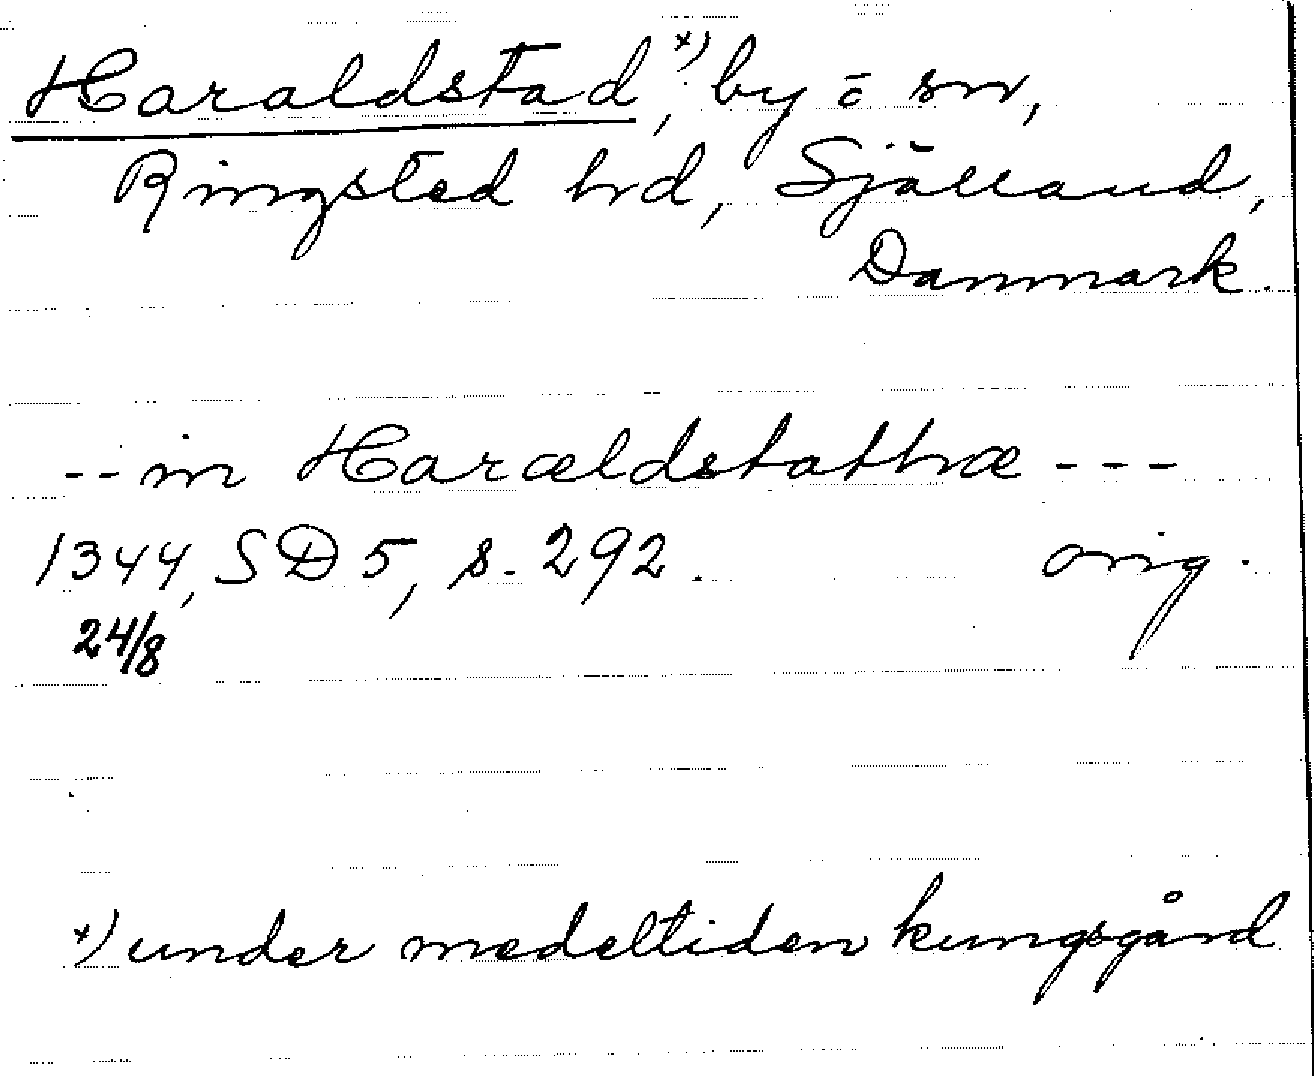 Haraldstad,*) by o sn,
Ringsted hrd, Själland,
Danmark.
-- in Haræeldstathæ ---
1344, SD 5, s. 292. orig.
24/8
*) under medeltiden kungsgård